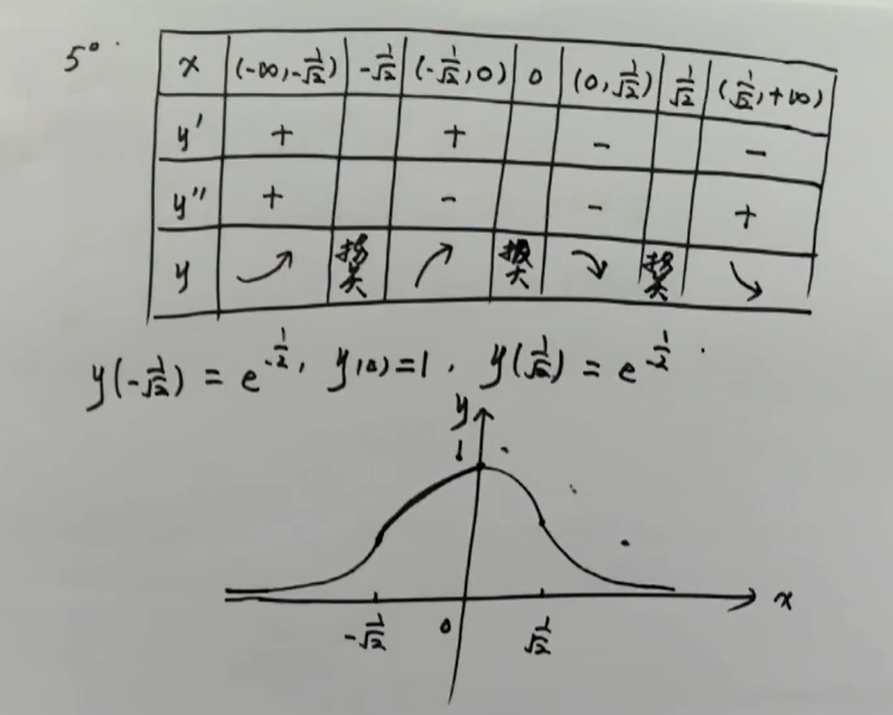 5°.
x (-∞,-1/√2) -1/√2 (-1/√2,0) 0 (0,1/√2) 1/√2 (1/√2,+∞)
y' + + - -
y'' + - - +
y 拐点 极大 拐点
y(-1/√2) = e^(-1/2), y(0)=1. y(1/√2) = e^(-1/2).
y
1
x
-1/√2 0 1/√2